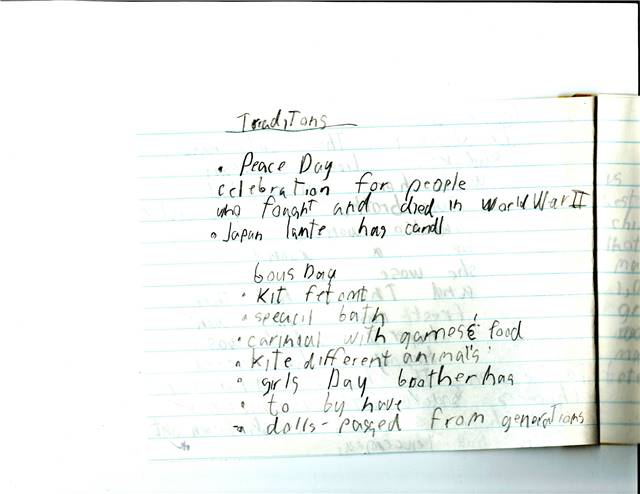 Treaditons
• Peace Day
celebration for people
who fought and died in World War II
• Japan lante has candl
bous Day
• Kit fetomt
• speacil bath
• carinival with games & food
• kite different animal's
• girls Day boother has
• to by have
• dolls - passed from generations